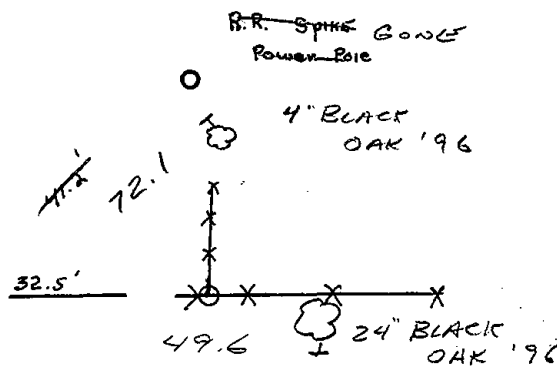 R.R. Spike GONE
Power Pole
4" BLACK
OAK '96
41.2'
72.1
32.5'
49.6
24" BLACK
OAK '96